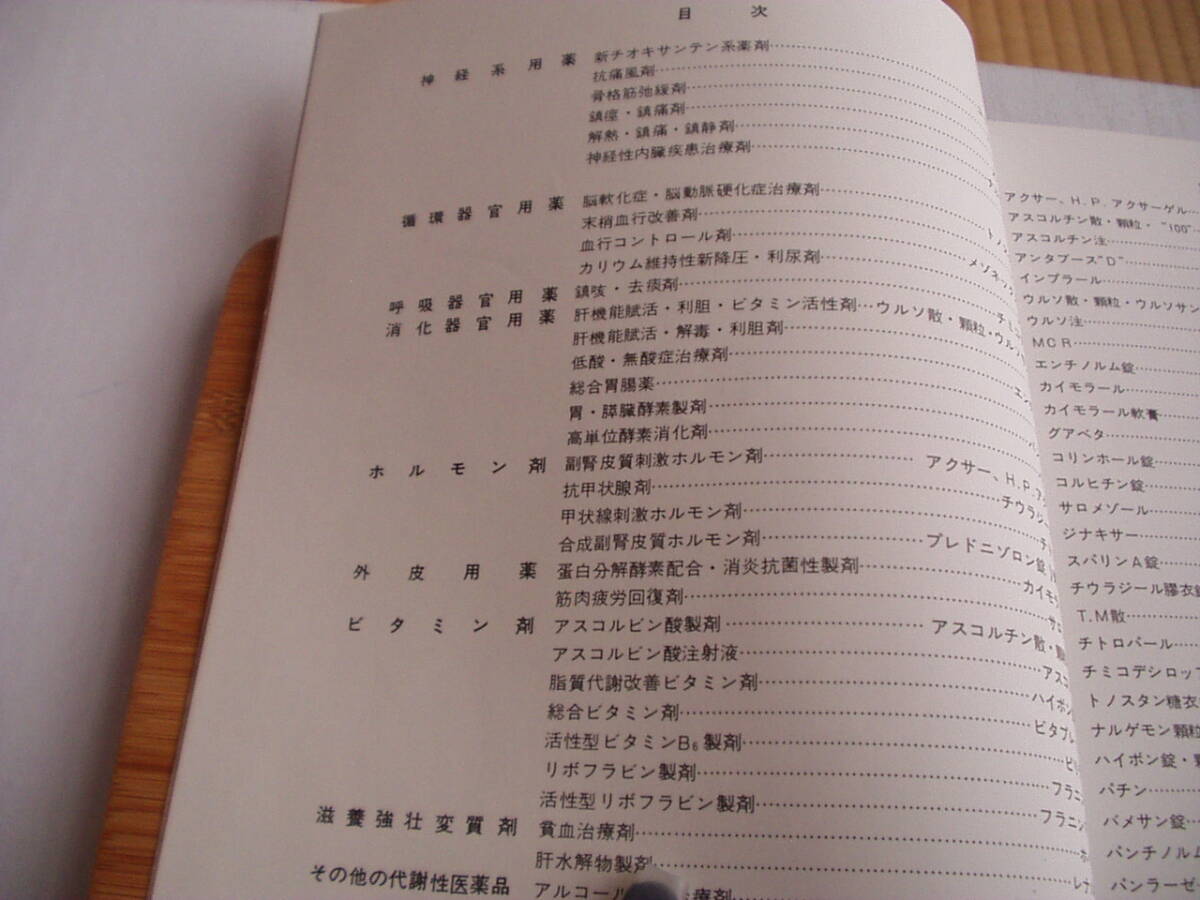 目次
神経系用薬 新チオキサンテン系薬剤
抗痛風剤
骨格筋弛緩剤
鎮痙・鎮痛剤
解熱・鎮痛・鎮静剤
神経性内臓疾患治療剤
循環器官用薬 脳軟化症・脳動脈硬化症治療剤
末梢血行改善剤
血行コントロール剤
カリウム維持性新降圧・利尿剤 メゾネッ
呼吸器官用薬 鎮咳・去痰剤
消化器官用薬 肝機能賦活・利胆・ビタミン活性剤…ウルソ散・顆粒・ウルソ
肝機能賦活・解毒・利胆剤
低酸・無酸症治療剤
総合胃腸薬
胃・膵臓酵素製剤
高単位酵素消化剤
ホルモン剤 副腎皮質刺激ホルモン剤 アクサー、H.P.ア
抗甲状腺剤 チウラジ
甲状線刺激ホルモン剤
合成副腎皮質ホルモン剤 プレドニゾロン錠
外皮用薬 蛋白分解酵素配合・消炎抗菌性製剤 カイモラ
筋肉疲労回復剤 サロ
ビタミン剤 アスコルビン酸製剤 アスコルチン散・顆
アスコルビン酸注射液 アスコ
脂質代謝改善ビタミン剤 ハイボン
総合ビタミン剤 ビタプレ
活性型ビタミンB₆製剤
リボフラビン製剤 フラニン
活性型リボフラビン製剤 フラニン
滋養強壮変質剤 貧血治療剤
肝水解物製剤 レナ
その他の代謝性医薬品 アルコール 療剤
アクサー、H.P.アクサーゲル
アスコルチン散・顆粒・"100"
アスコルチン注
アンタブース"D"
インプラール
ウルソ散・顆粒・ウルソサン
ウルソ注
MCR
エンチノルム錠
カイモラール
カイモラール軟膏
グアベタ
コリンホール錠
コルヒチン錠
サロメゾール
ジナキサー
スパリンA錠
チウラジール膠衣錠
T.M散
チトロパール
チミコデシロップ
トノスタン糖衣
ナルゲモン顆粒
ハイボン錠・顆
パチン
バメサン錠
パンチノルム
パンラーゼ